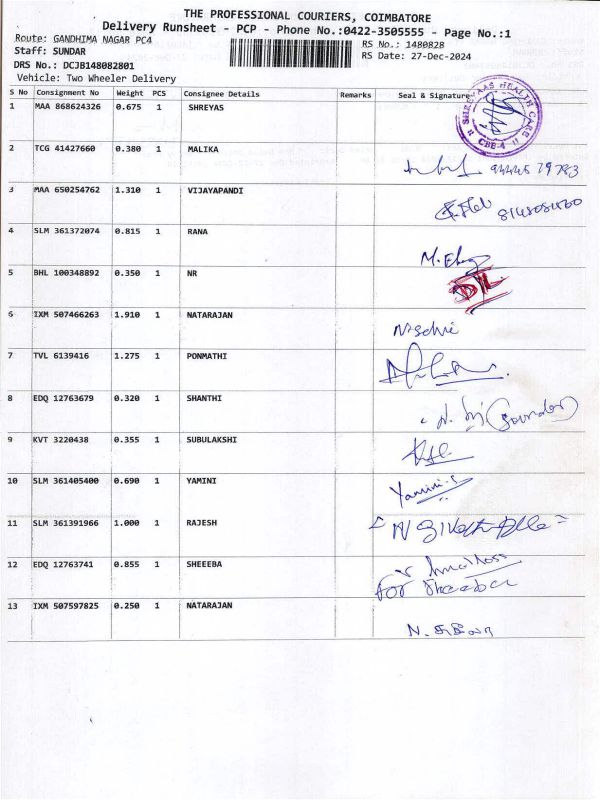 THE PROFESSIONAL COURIERS, COIMBATORE
Delivery Runsheet - PCP - Phone No.:0422-3505555 - Page No.:1
Route: GANDHIMA NAGAR PC4
RS No.: 1480828
Staff: SUNDAR
RS Date: 27-Dec-2024
DRS No.: DCJB148082801
Vehicle: Two Wheeler Delivery
S No Consignment No Weight PCS Consignee Details Remarks Seal & Signature
SHREYAAS HEALTH CARE
CBE-4
1 MAA 868624326 0.675 1 SHREYAS
2 TCG 41427660 0.380 1 MALIKA
3 MAA 650254762 1.310 1 VIJAYAPANDI
4 SLM 361372074 0.815 1 RANA
5 BHL 100348892 0.350 1 NR DL
6 IXM 507466263 1.910 1 NATARAJAN
7 TVL 6139416 1.275 1 PONMATHI
8 EDQ 12763679 0.320 1 SHANTHI
9 KVT 3220438 0.355 1 SUBULAKSHI
10 SLM 361405400 0.690 1 YAMINI Yamini.S
11 SLM 361391966 1.000 1 RAJESH
12 EDQ 12763741 0.855 1 SHEEEBA
For Sheeba
13 IXM 507597825 0.250 1 NATARAJAN